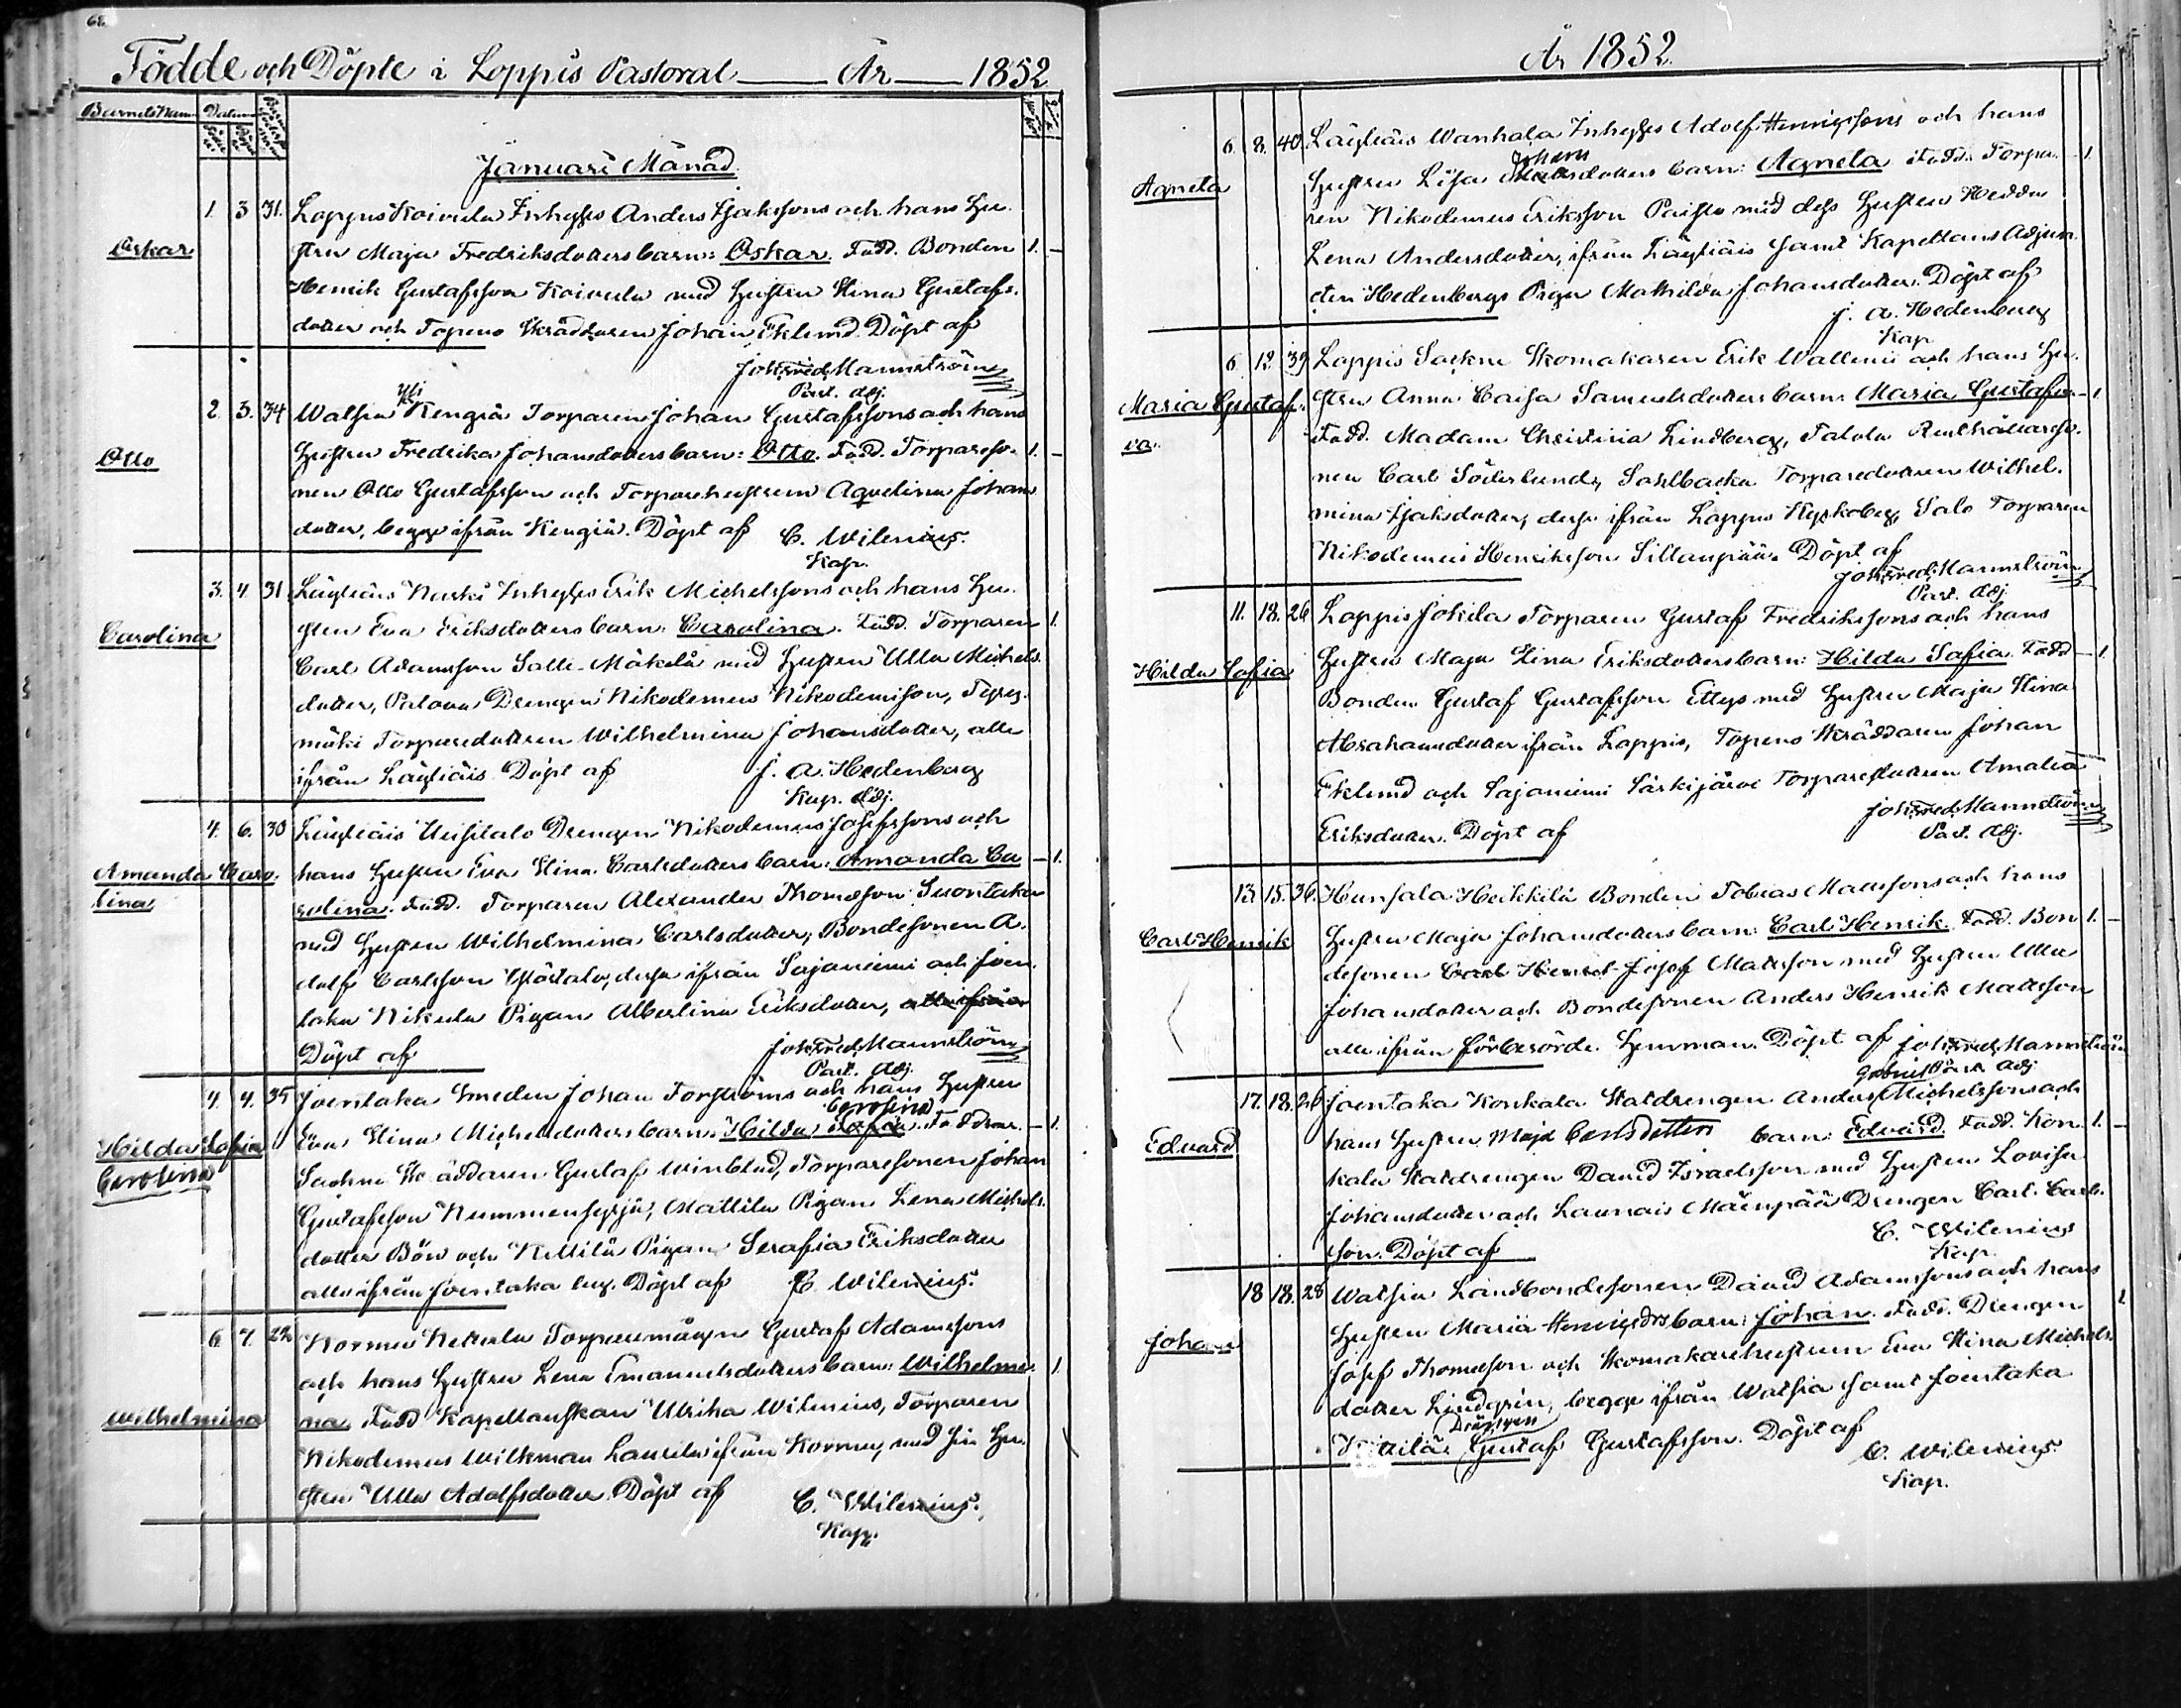 68.
Födde och Döpte i Loppis Pastorat År 1852
Barnets Namn Datum
Januari Månad.
1. 3 31. Loppis Koivula Inhyses Anders Isakssons och hans Hu-
Oskar stru Maja Fredriksdotters barn: Oskar. Fadd. Bonden 1. –
Henrik Gustafsson Koivula med hustru Stina Gustafs-
dotter och Topeno Skräddaren Johan Eklund. Döpt af
Joh. Fred. Mannström
Past. Adj.
2. 3. 34 Watsia Yli Kengiä Torparen Johan Gustafssons och hans
Otto hustru Fredrika Johansdotters barn: Otto. Fadd. Torpareso- 1. –
nen Otto Gustafsson och Torparehustrun Aqvelina Johans
dotter, begge ifrån Kengiä. Döpt af C. Wilenius.
Kap.
3. 4 31 Läyliäis Inhyses Erik Michelssons och hans Hu-
Carolina stru Eva Eriksdotters barn: Carolina. Fadd. Torparen 1.
Carl Adamsson Salle-Mäkelä med hustru Ulla Michels-
dotter, Drengen Nikodemus Nikodemison,
mäki Torparedottren Wilhelmina Johansdotter, alla
ifrån Läyliäis. Döpt af J. A. Hedenberg
Kap. Adj.
4. 6. 30 Läyliäis Uusitalo Drengen Nikodemus Josefssons och
Amanda Caro- hans hustru Eva Stina Carlsdotters barn: Amanda Ca – 1.
lina rolina. Fadd. Torparen Alexander Thomsson Suontaka
med hustru Wilhelmina Carlsdotter, Bondesonen A-
dolf Carlsson dessa ifrån Sajaniemi och Joen
taka Nikula Pigan Albertina Eriksdotter, alla ifrån
Döpt af Joh. Fred. Mannström
Past. Adj.
4. 4. 35 Joentaka Smeden Johan Forströms och hans hustru
Carolina
Hilda Sofia Eva Stina Michelsdotters barn: Hilda Sofia. Faddrar. – 1.
Carolina Sackne Skräddaren Gustaf Winblad, Torparesonen Johan
Gustafsson Nummensyrjä, Mattila Pigan Lena Michels-
dotter Böw och Kittilä Pigan Serafia Eriksdotter
alla ifrån Joentaka by. Döpt af C. Wilenius.
6. 7. 22 Kormu Torparemågen Gustaf Adamssons
och hans hustru Lena Emanuelsdotters barn: Wilhelmi- 1
Wilhelmina na. Fadd Kapellanskan Ulrika Wilenius, Torparen
Nikodemus Wilkman Laurila ifrån Kormu, med sin hu-
stru Ulla Adolfsdotter. Döpt af C. Wilenius.
Kap.
År 1852.
6. 8. 40. Läyliäis Wanhala Inhyses Adolf Henrigssons och hans
Johans
Agneta hustru Lisa dotters barn: Agneta. Fadd. Torpa- – 1
ren Nikodemus Eriksson Paisto med dess hustru Hedda
Lena Andersdotter, ifrån Läyliäis samt Kapellans Adjun
cten Hedenbergs Piga Mathilda Johansdotter. Döpt af
J. A. Hedenberg
Kap
6. 12. 39 Loppis Sackne Skomakaren Erik Wallenii och hans Hu-
Maria Gustaf- stru Anna Caisa Samuelsdotters barn: Maria Gustafva. – 1
va. Fadd. Madam Christina Lindberg, Talola Rusthållareso-
nen Carl Söderlund, Sahlbacka Torparedottren Wilhel-
mina Isaksdotter, dessa ifrån Loppis Kyrkoby, Salo Torparen
Nikodemus Henriksson Sillanpää. Döpt af
Joh. Fred. Mannström
Past. Adj.
11. 18. 26 Loppis Jokila Torparen Gustaf Fredrikssons och hans
Hilda Sofia hustru Maja Lina Eriksdotters barn: Hilda Sofia. Fadd – 1.
Bonden Gustaf Gustafsson Ettys med hustru Maja Stina
Abrahamsdotter ifrån Loppis, Topeno Skräddaren Johan
Eklund och Sajaniemi Särkijärvi Torparedottren Amalia
Eriksdotter. Döpt af Joh. Fred. Mannström
Past. Adj.
13. 15. 36. Hunsala Heikkilä Bonden Tobias Mattssons och hans
Carl Henrik hustru Maja Johansdotters barn: Carl Henrik. Fadd. Bon 1. –
desonen Josef Mattsson med hustru Ulla
Johansdotter och Bondesonen Anders Henrik Mattsson
alla ifrån förberörde hemman. Döpt af Joh. Fred. Mannström
Past. Adj.
17. 18. 26 Joentaka Konkala Statdrengen Anders Michelssons och
Edvard hans hustru Maja Carlsdotters barn: Edvard. Fadd. Kon 1. –
kala Statdrengen David Israelsson med hustru Lovisa
Johansdotter och Launais Mäenpää Drengen Carl Carls-
son. Döpt af C. Wilenius
Kap.
18 18. 28 Watsia Landbondesonen David Adamssons och hans
Johan hustru Maria Henrigsdrs barn: Johan. Fadd. Drengen 1
Josef Thomasson och Skomakarehustrun Eva Stina Michels-
dotter Lindgrén, begge ifrån Watsia samt Joentaka
Drängen
Kittilä Gustaf Gustafsson. Döpt af
C. Wilenius
Kap.